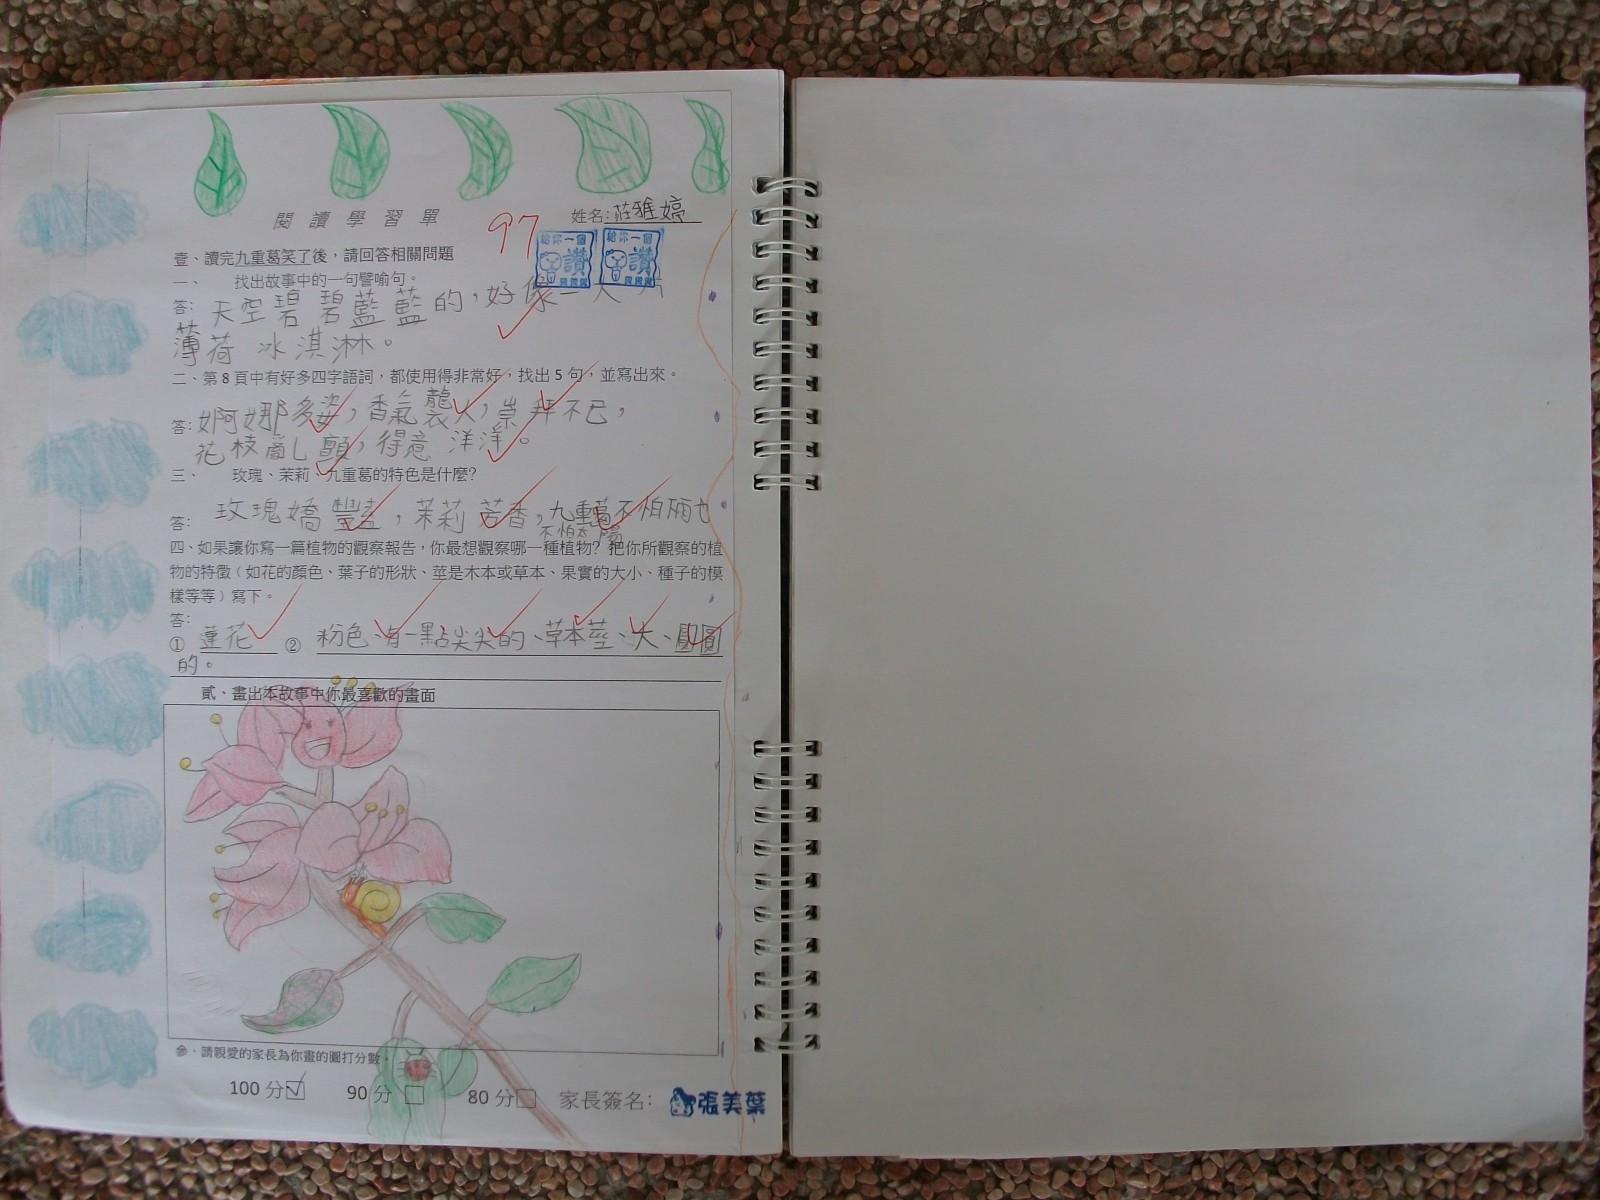 閱讀學習單
97
姓名:莊雅婷
給你一個
讚
給你一個
讚
壹、讀完九重葛笑了後，請回答相關問題
一、 找出故事中的一句譬喻句。
答: 天空碧碧藍藍的，好像一大片
薄荷冰淇淋。
二、第8頁中有好多四字語詞，都使用得非常好，找出5句，並寫出來。
答: 婀娜多姿，香氣襲人，崇拜不已，
花枝亂顫，得意洋洋。
三、 玫瑰、茉莉、九重葛的特色是什麼?
答: 玫瑰嬌豔，茉莉芳香，九重葛不怕雨也
不怕太陽
四、如果讓你寫一篇植物的觀察報告，你最想觀察哪一種植物? 把你所觀察的植
物的特徵（如花的顏色、葉子的形狀、莖是木本或草本、果實的大小、種子的模
樣等等）寫下。
答:
① 蓮花 ② 粉色、有一點尖尖的、草本莖、大、圓圓
的。
貳、畫出本故事中你最喜歡的畫面
參、請親愛的家長為你畫的圖打分數。
100 分☑ 90 分□ 80 分□ 家長簽名: 張美葉